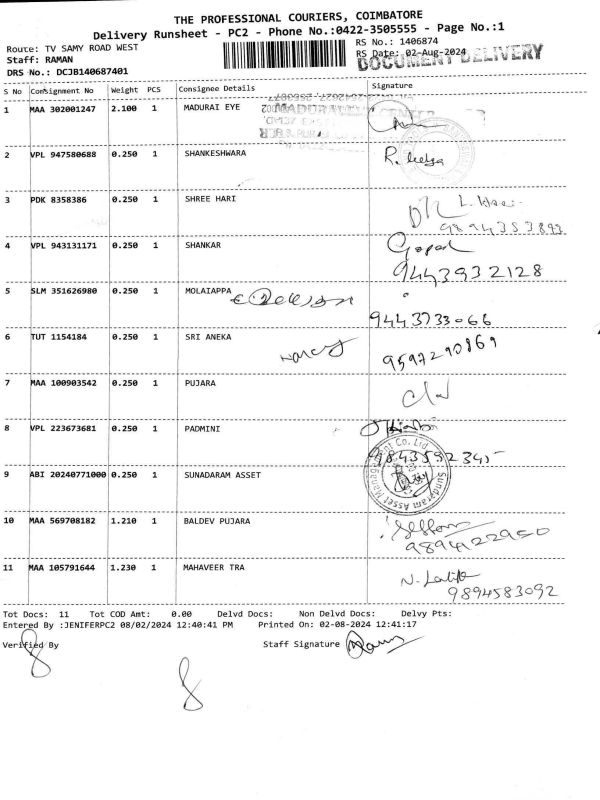 THE PROFESSIONAL COURIERS, COIMBATORE
Delivery Runsheet - PC2 - Phone No.:0422-3505555 - Page No.:1
Route: TV SAMY ROAD WEST
RS No.: 1406874
Staff: RAMAN
RS Date: 02-Aug-2024
DOCUMENT DELIVERY
DRS No.: DCJB140687401
S No Consignment No Weight PCS Consignee Details Signature
1 MAA 302001247 2.100 1 MADURAI EYE
2 VPL 947580688 0.250 1 SHANKESHWARA
3 PDK 8358386 0.250 1 SHREE HARI
9894353893
4 VPL 943131171 0.250 1 SHANKAR Gopal
9443932128
5 SLM 351626980 0.250 1 MOLAIAPPA
9443733066
6 TUT 1154184 0.250 1 SRI ANEKA
9597290869
7 MAA 100903542 0.250 1 PUJARA
8 VPL 223673681 0.250 1 PADMINI
9843592345
9 ABI 20240771000 0.250 1 SUNADARAM ASSET
Sundaram Asset Management Co. Ltd
10 MAA 569708182 1.210 1 BALDEV PUJARA
9894122950
11 MAA 105791644 1.230 1 MAHAVEER TRA
9894583092
Tot Docs: 11 Tot COD Amt: 0.00 Delvd Docs: Non Delvd Docs: Delvy Pts:
Entered By :JENIFERPC2 08/02/2024 12:40:41 PM Printed On: 02-08-2024 12:41:17
Verified By Staff Signature